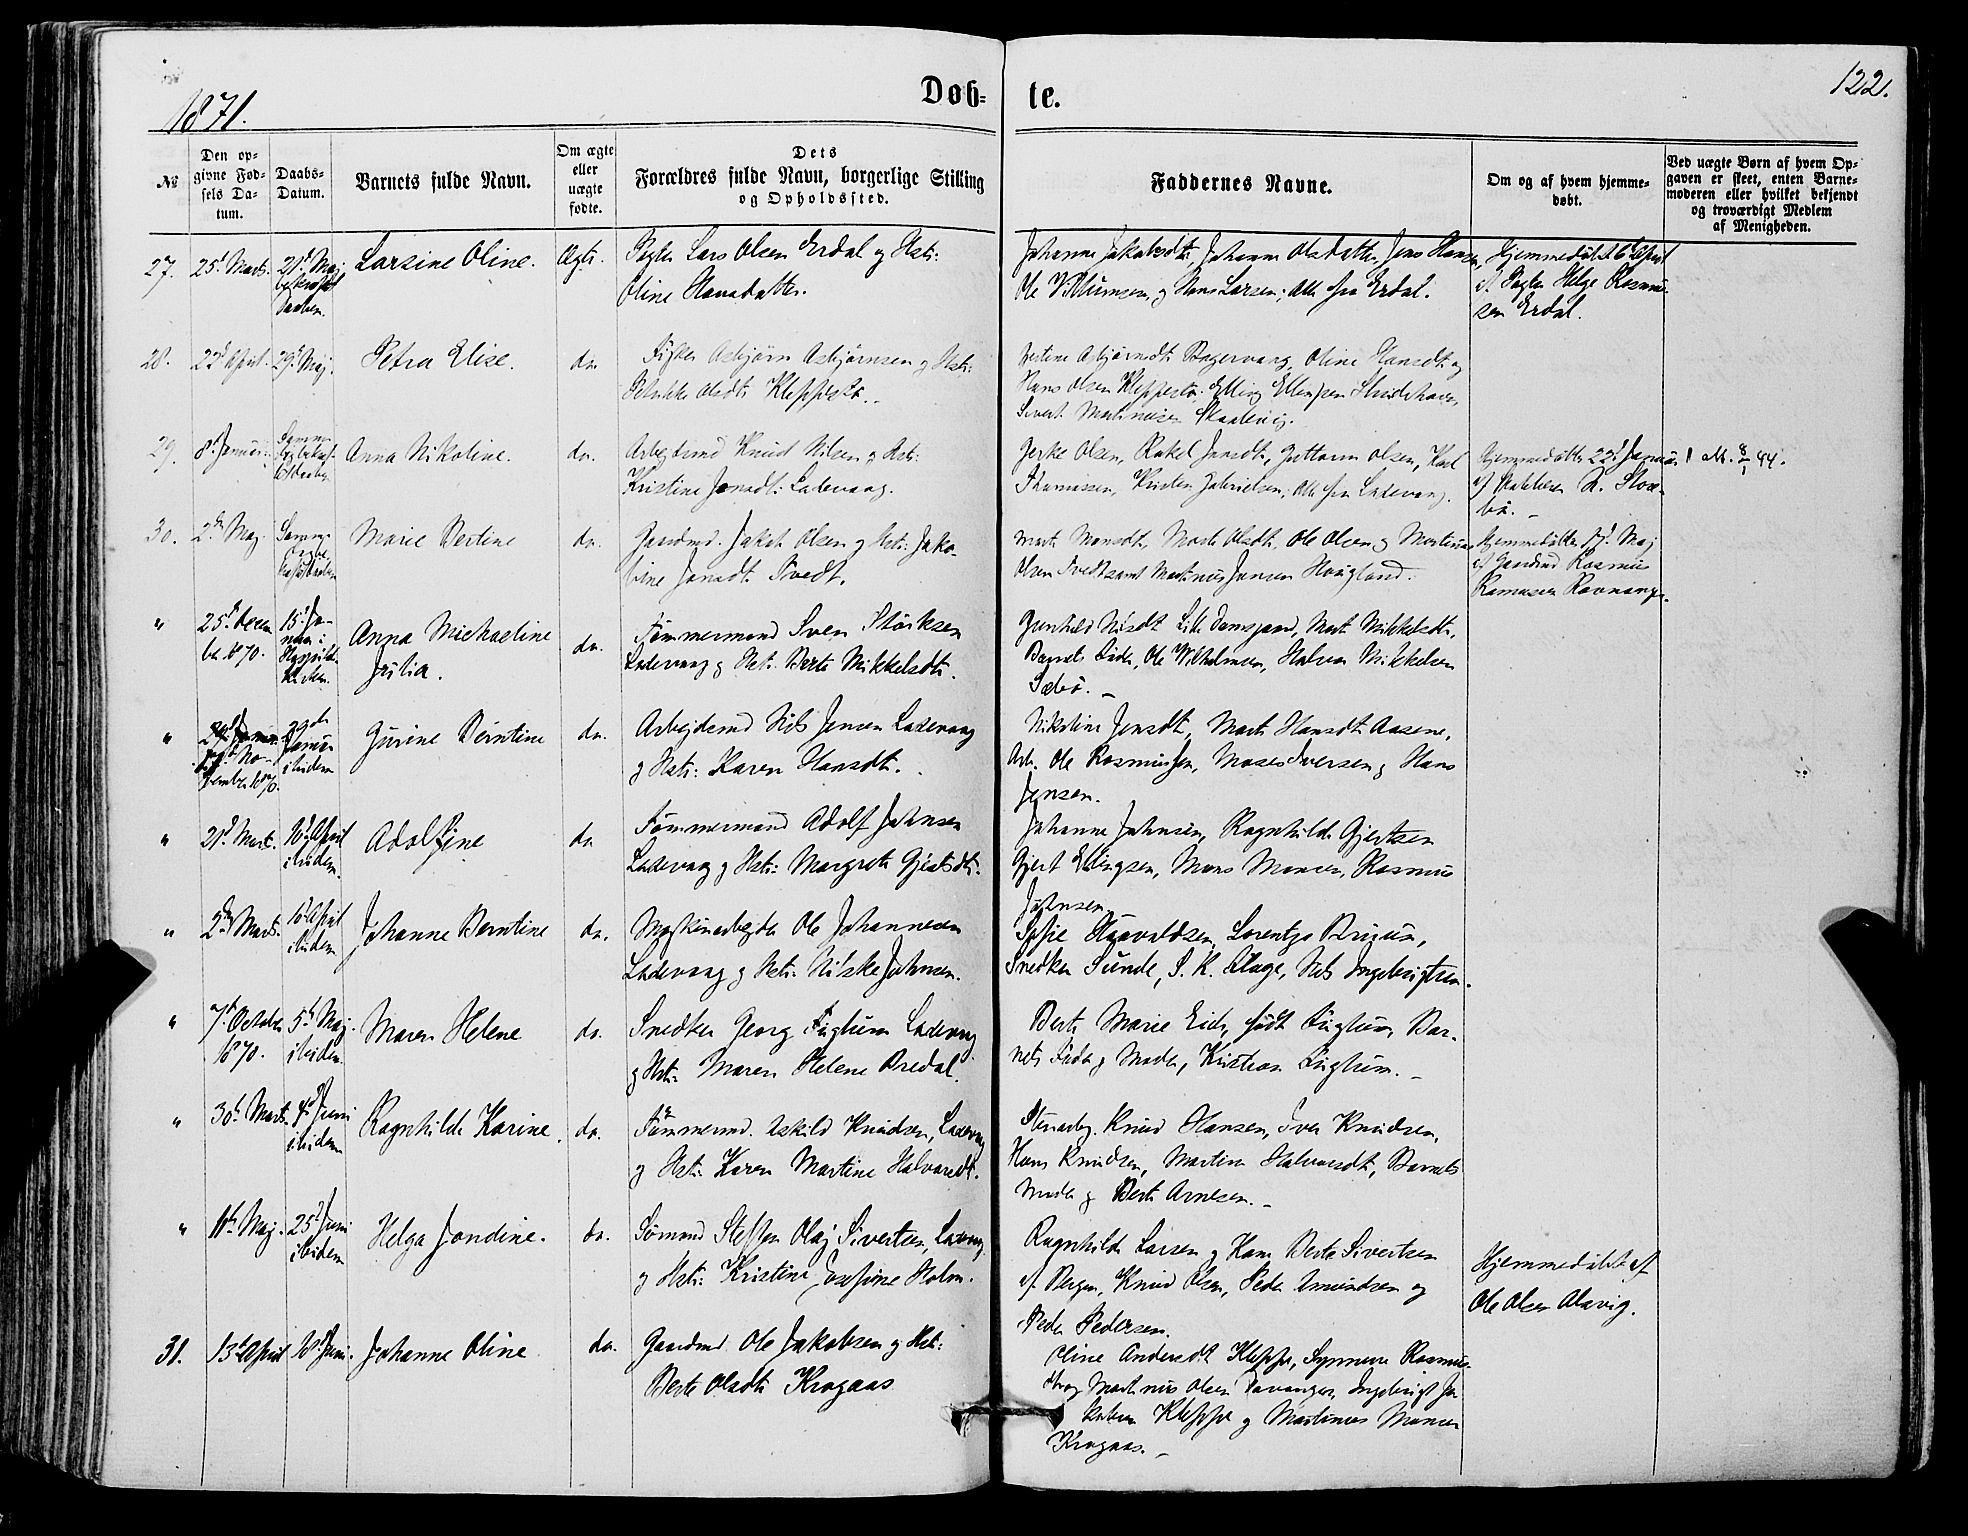 1871.
Døb-
te.
122.
№
Den op-
givne Fød-
sels Da-
tum.
Daabs-
Datum.
Barnets fulde Navn.
Om ægte
eller
uægte
fødte.
Dets
Forældres fulde Navn, borgerlige Stilling
og Opholdssted.
Faddernes Navne.
Om og af hvem hjemme-
døbt.
Ved uægte Børn af hvem Op-
gaven er skeet, enten Barne-
moderen eller hvilket bekjendt
og troværdigt Medlem
af Menigheden.
27. 25d Marts. 21d Maj
Daaben.
Larsine Oline.
Ægte.
Lars Olsen Erdal og Hstr:
Oline Hansdatter.
Johanne Jakobsdtr, Johanne Olsdatter, Jens Hansen,
Ole Villumsen, og Hans Larsen; alle fra Erdal.
Hjemmedøbt 6d April
af Helge Rasmu-
sen Erdal.
28. 22d April. 29d Maj.
Petra Elise.
do.
Asbjørn Asbjørnsen og Hstr:
Olsdtr Kleppestø.
Oline Hansdtr og
Hans Olsen Kleppestø, Elling Ellingsen
Sivert Martinusen
29. 8d Januar.
Anna Nikoline.
do.
Arbejdsmd Knud Nilsen og Hstr:
Kristine Jonsdtr: Ladevaag.
Gjerke Olsen, Rakel Jonsdtr, Guttorm Olsen, Karl
Thomassen, Kristen Gabrielsen; alle fra Ladevaag.
Hjemmedøbt 22d Januar
af
30. 2den Maj.
Marie Bertine
do.
Gaardmd. Jakob Olsen og Hstr: Jako-
bine Jonsdtr Tvedt.
Marte Monsdtr, Marte Olsdtr, Ole Olsen og Martinus
Olsen Tvedt samt Martinus Jansen Hougland.
Hjemmedøbt Maj
af Gaardmd Rasmus
Rasmusen Ravnanger.
" 25d Decem
ber 1870.
15d Ja-
nuar i
Anna Michaeline
Julia.
do.
Tømmermand Sven Størksen
Ladevaag og Hstr: Berte Mikkelsdtr.
Gunhild Nilsdtr Lille Damsgaard, Marte Mikkelsdtr,
Barnets Fader, Ole Wilhelmsen, Halvor Mikkelsen
Sæbø.
" No-
vember 1870.
29de
Januar
ibidem
Gurine Berntine
do.
Arbejdsmd Nils Jensen Ladevaag
og Hstr: Karen Hansdtr.
Nikoline Jensdtr, Marte Hansdtr Aasene,
Arb. Ole Rasmussen, Moses Iversen og Hans
Jensen.
" 21d Marts. 10d April
ibidem.
Adolfine
do
Tømmermand Adolf Johnsen
Ladevaag og Hstr: Margrete Gjertsdtr.
Johanne Johnsen, Ragnhilde Gjertsen
Gjert Ellingsen, Mons Monsen, Rasmus
Johnsen.
" 2den Marts. 10d April
ibidem.
Johanne Berntine
do.
Maskinarbejder Ole Johannesen
Ladevaag og Hstr: Nilske Johnsen.
Sofie Haavaldsen, Lorentze Bruun,
Snedker Sunde, S. K. Nils Ingebrigtsen.
" 7d October
1870.
5d Maj.
ibidem.
Maren Helene
do.
Snedker Georg Fuglum Ladevaag
og Hstr: Maren Helene Bredal.
Berte Marie Eide, født Fuglum, Bar-
nets Fader og Moder, Kristian Fuglum.
" 30d Marts. 4d Juni
ibidem
Ragnhilde Karine.
do.
Tømmermd. Askild Knudsen, Ladevaag
og Hstr: Karen Martine Halvorsdtr.
Stenarbej. Knud Hansen, Iver Knudsen,
Hans Knudsen, Martine Halvorsdtr, Barnets
Moder og Berte Arnesen.
" 11te Maj. 25d Juni
ibidem
Helga Jondine.
do.
Sømand Steffen Olaj Sivertsen, Ladevaag
og Hstr: Kristine Josefine Holm.
Ragnhilde Larsen og Hans Berte Sivertsen
af Bergen, Knud Olsen, Peder Amundsen og
Peder Pedersen.
Hjemmedøbt af
Ole Olsen Alavig.
31. 13d April 18d Juni.
Johanne Oline
do.
Gaardmd Ole Jakobsen og Hstr:
Berte Olsdtr Krogaas
Oline Andersdtr Kleppe, Synneve Rasmus-
dtr og Martinus Olsen Davanger, Ingebrigt Ja-
kobsen Kleppe og Martinus Monsen
Krogaas.